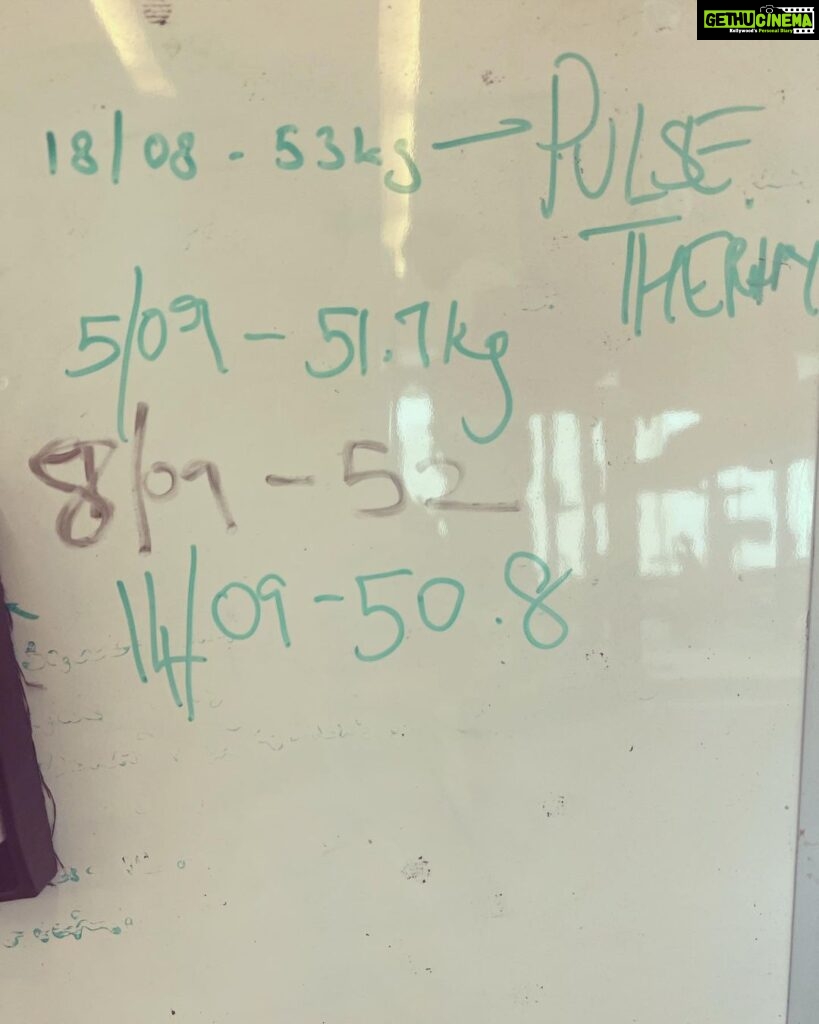 GETHU CINEMA
Kollywood's Personal Diary
18/08 - 53kg → PULSE
THERAPY
5/09 - 51.7kg
8/09 - 52
14/09 - 50.8